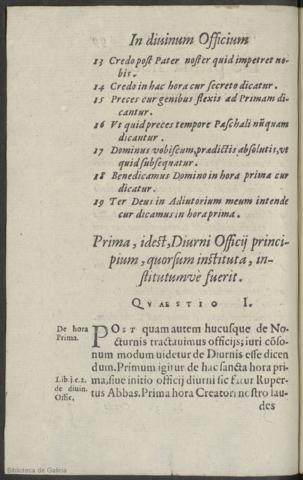 In diuinum Officium
13 Credo post Pater noster quid impetret no-
bis.
14 Credo in hac hora cur secreto dicatur.
15 Preces cur genibus flexis ad Primam di-
cantur.
16 Vt quid preces tempore Paschali nūquam
dicantur.
17 Dominus vobiscum, prædictis absolutis, vt
quid subsequatur.
18 Benedicamus Domino in hora prima cur
dicatur.
19 Ter Deus in Adiutorium meum intende
cur dicamus in hora prima.
Prima, idest, Diurni Officij princi-
pium, quorsum instituta, in-
stitutumve fuerit.
QVÆSTIO I.
De hora
Prima.
POST quam autem hucusque de No-
cturnis tractauimus officijs; iuri cōso-
num modum uidetur de Diurnis esse dicen
dum. Primum igitur de hac sancta hora pri-
ma, siue initio officij diurni sic fatur Ruper-
Lib. 1. c. 2.
de diuin.
Offic.
tus Abbas. Prima hora Creatori nostro lau-
des
Biblioteca de Galicia